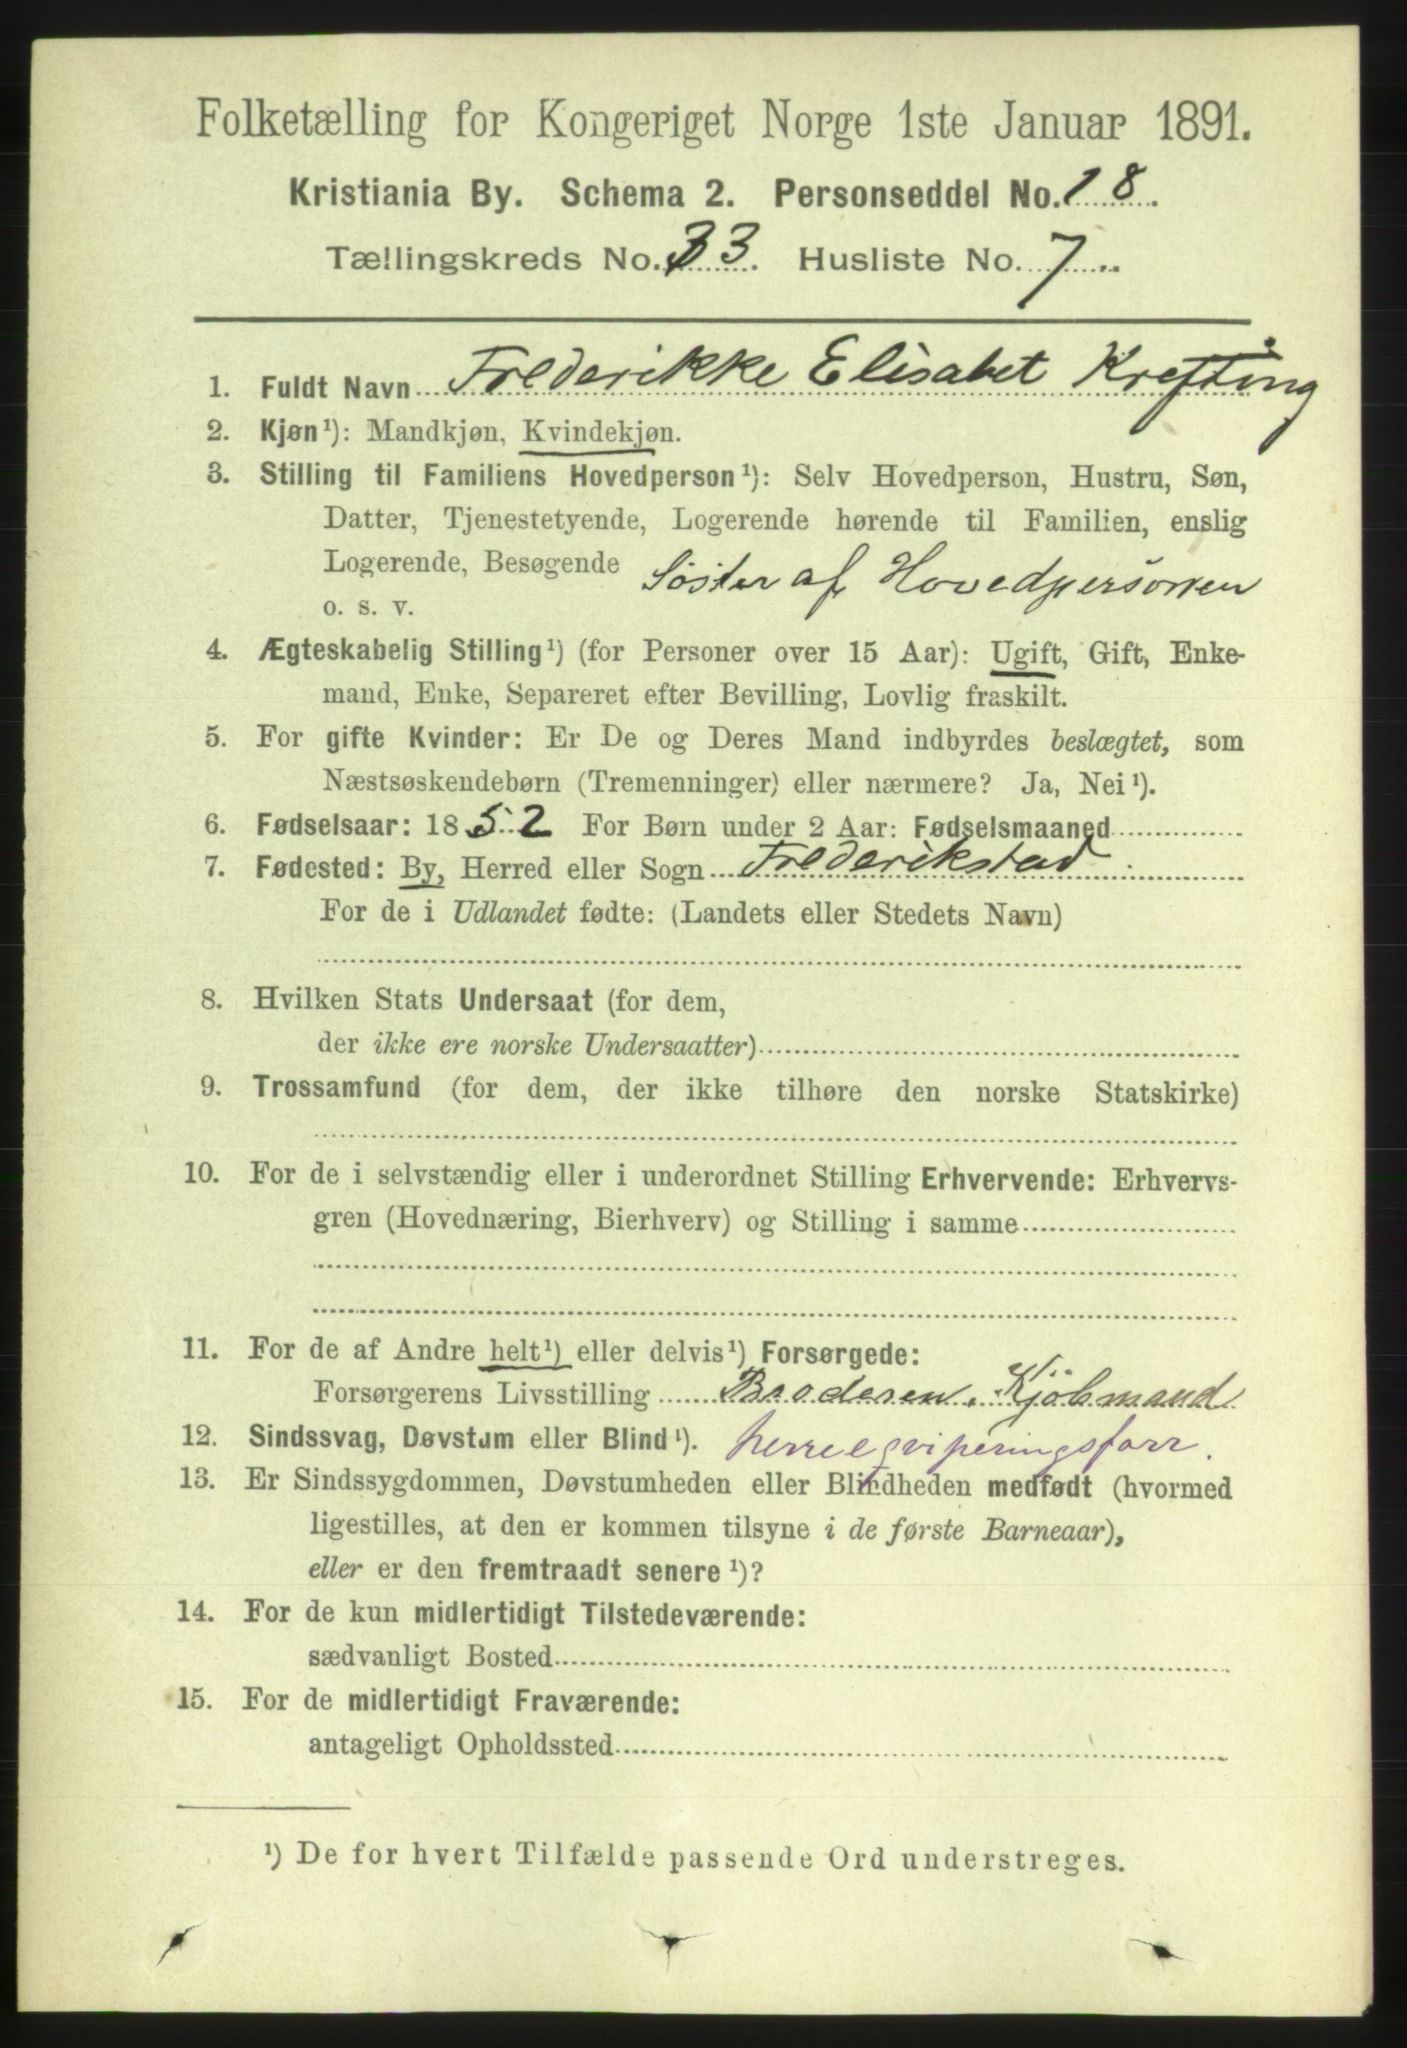 Folketælling for Kongeriget Norge 1ste Januar 1891.
Kristiania By. Schema 2. Personseddel No. 18.
Tællingskreds No. 33. Husliste No. 7.
1. Fuldt Navn Frederikke Elisabet Krefting
2. Kjøn¹): Mandkjøn, Kvindekjøn.
3. Stilling til Familiens Hovedperson¹): Selv Hovedperson, Hustru, Søn,
Datter, Tjenestetyende, Logerende hørende til Familien, enslig
Logerende, Besøgende Söster af Hovedpersonen
o. s. v.
4. Ægteskabelig Stilling¹) (for Personer over 15 Aar): Ugift, Gift, Enke-
mand, Enke, Separeret efter Bevilling, Lovlig fraskilt.
5. For gifte Kvinder: Er De og Deres Mand indbyrdes beslægtet, som
Næstsøskendebørn (Tremenninger) eller nærmere? Ja, Nei¹).
6. Fødselsaar: 1852 For Børn under 2 Aar: Fødselsmaaned
7. Fødested: By, Herred eller Sogn Frederikstad
For de i Udlandet fødte: (Landets eller Stedets Navn)
8. Hvilken Stats Undersaat (for dem,
der ikke ere norske Undersaatter)
9. Trossamfund (for dem, der ikke tilhøre den norske Statskirke)
10. For de i selvstændig eller i underordnet Stilling Erhvervende: Erhvervs-
gren (Hovednæring, Bierhverv) og Stilling i samme
11. For de af Andre helt¹) eller delvis¹) Forsørgede:
Forsørgerens Livsstilling Broderen, Kjöbmand
12. Sindssvag, Døvstum eller Blind¹). herreeqviperingsforr.
13. Er Sindssygdommen, Døvstumheden eller Blindheden medfødt (hvormed
ligestilles, at den er kommen tilsyne i de første Barneaar),
eller er den fremtraadt senere¹)?
14. For de kun midlertidigt Tilstedeværende:
sædvanligt Bosted
15. For de midlertidigt Fraværende:
antageligt Opholdssted
¹) De for hvert Tilfælde passende Ord understreges.